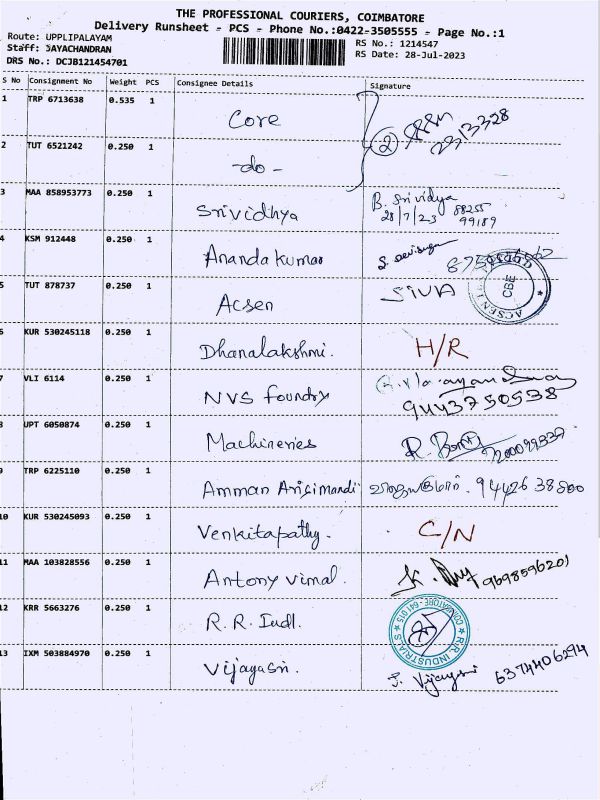 THE PROFESSIONAL COURIERS, COIMBATORE
Delivery Runsheet - PCS - Phone No.:0422-3505555 - Page No.:1
Route: UPPLIPALAYAM
RS No.: 1214547
Staff: JAYACHANDRAN
RS Date: 28-Jul-2023
DRS No.: DCJB121454701
S No Consignment No Weight PCS Consignee Details Signature
1 TRP 6713638 0.535 1 Core
2313328
2 TUT 6521242 0.250 1 -do- 2
3 MAA 858953773 0.250 1 Srividhya B. Srividya
28/7/23 88255
99189
4 KSM 912448 0.250 1 Anandakumar
5 TUT 878737 0.250 1 Acsen SIVA
ACSEN CBE
6 KUR 530245118 0.250 1 Dhanalakshmi. H/R
7 VLI 6114 0.250 1 NVS foundry
9443750538
8 UPT 6050874 0.250 1 Machineries
9 TRP 6225110 0.250 1 Amman Arisimandi 94426 38800
10 KUR 530245093 0.250 1 Venkitapathy. C/N
11 MAA 103828556 0.250 1 Antony Vimal. 9698596201
12 KRR 5663276 0.250 1 R.R. Indl.
R.R. INDUSTRIALS COIMBATORE-641 015
13 IXM 503884970 0.250 1 Vijayasri. 6374406294